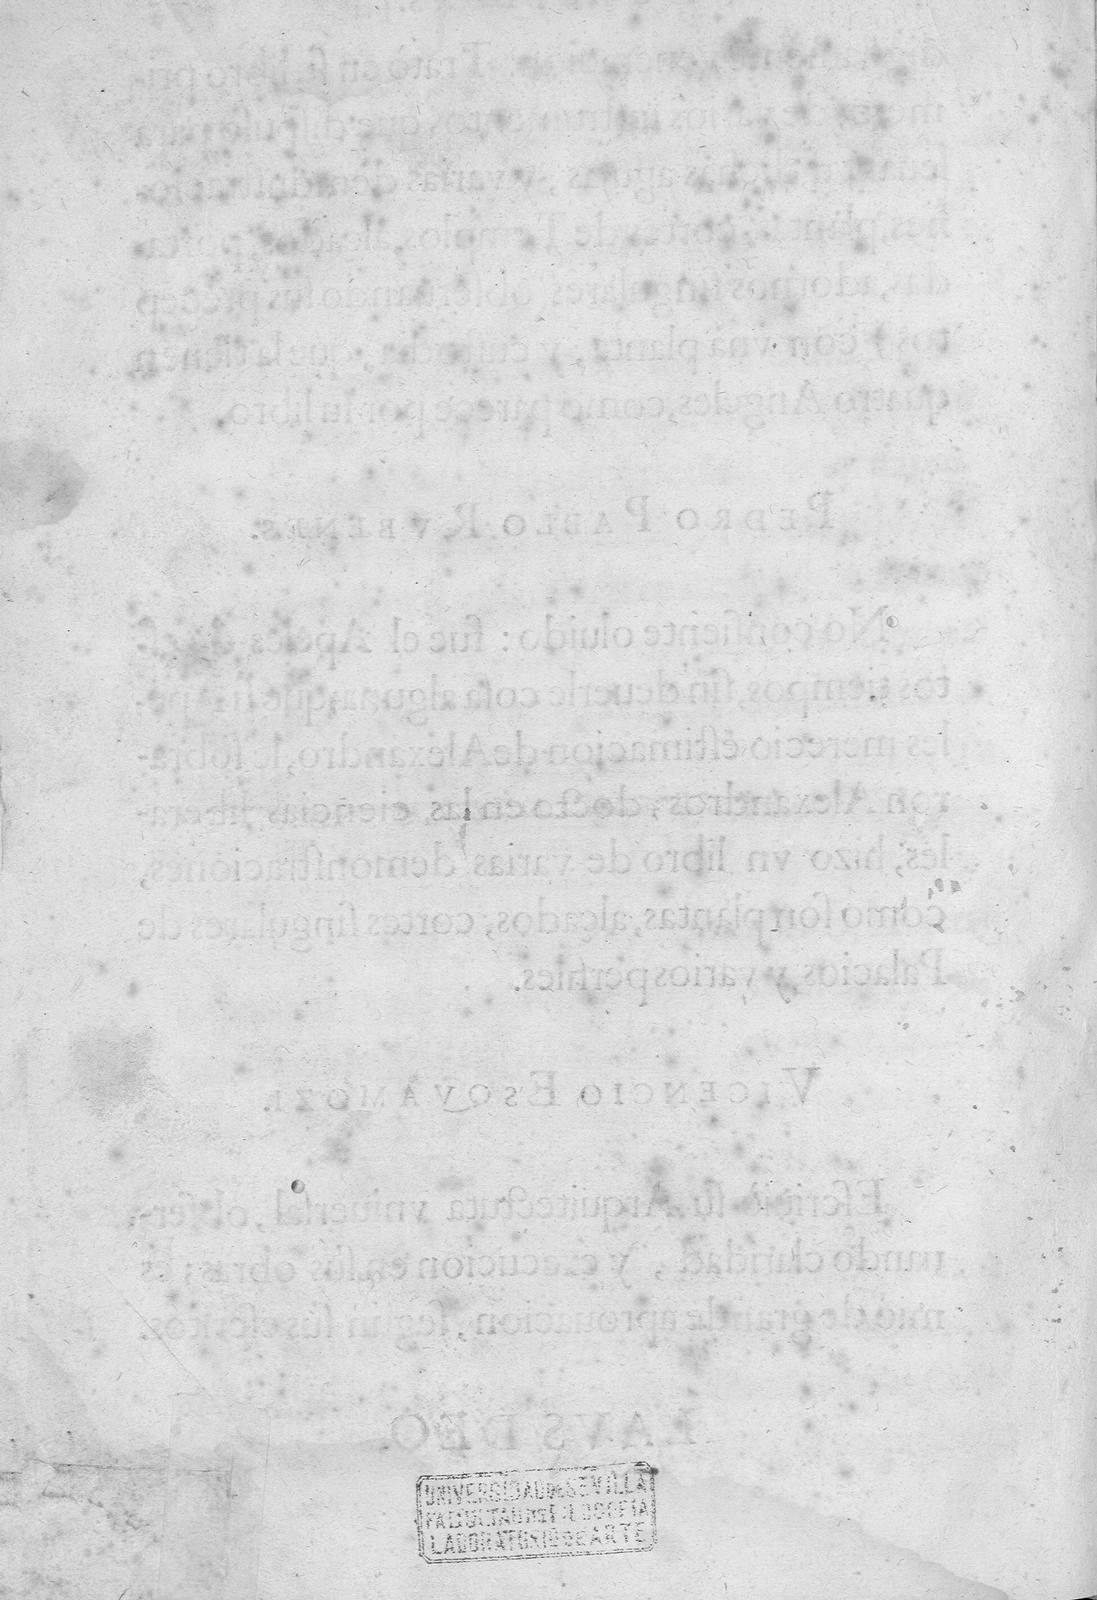 Trató en ſu libro pri-
que diſpuſo para
aguas, y varias demonſtracio-
nes, plantas, cortes de Templos, alçados, porta-
das, adornos ſingulares, obſeruando ſus precep
tos, con vna planta, y cuſtodia, que la tienen
quatro Angeles, como parece por ſu libro.
PEDRO PABLO RVBENES.
No conſiente oluido: fue el Apeles deſ-
tos tiempos, ſin deuerle coſa alguna; que ſi Ape-
les merecio eſtimacion de Alexandro, le ſobra-
ron Alexandros; docto en las ciencias libera-
les, hizo vn libro de varias demonſtraciones,
como ſon plantas, alçados, cortes ſingulares de
Palacios, y varios perfiles.
VICENCIO ESQVAMOZI.
Eſcriuiò ſu Arquitectura vniuerſal, obſer-
uando claridad, y execucion en ſus obras; es
de grande aprouacion, ſegun ſus eſcritos.
LAVS DEO.
UNIVERSIDAD DE SEVILLA
FACULTAD DE FILOSOFIA
LABORATORIO DE ARTE